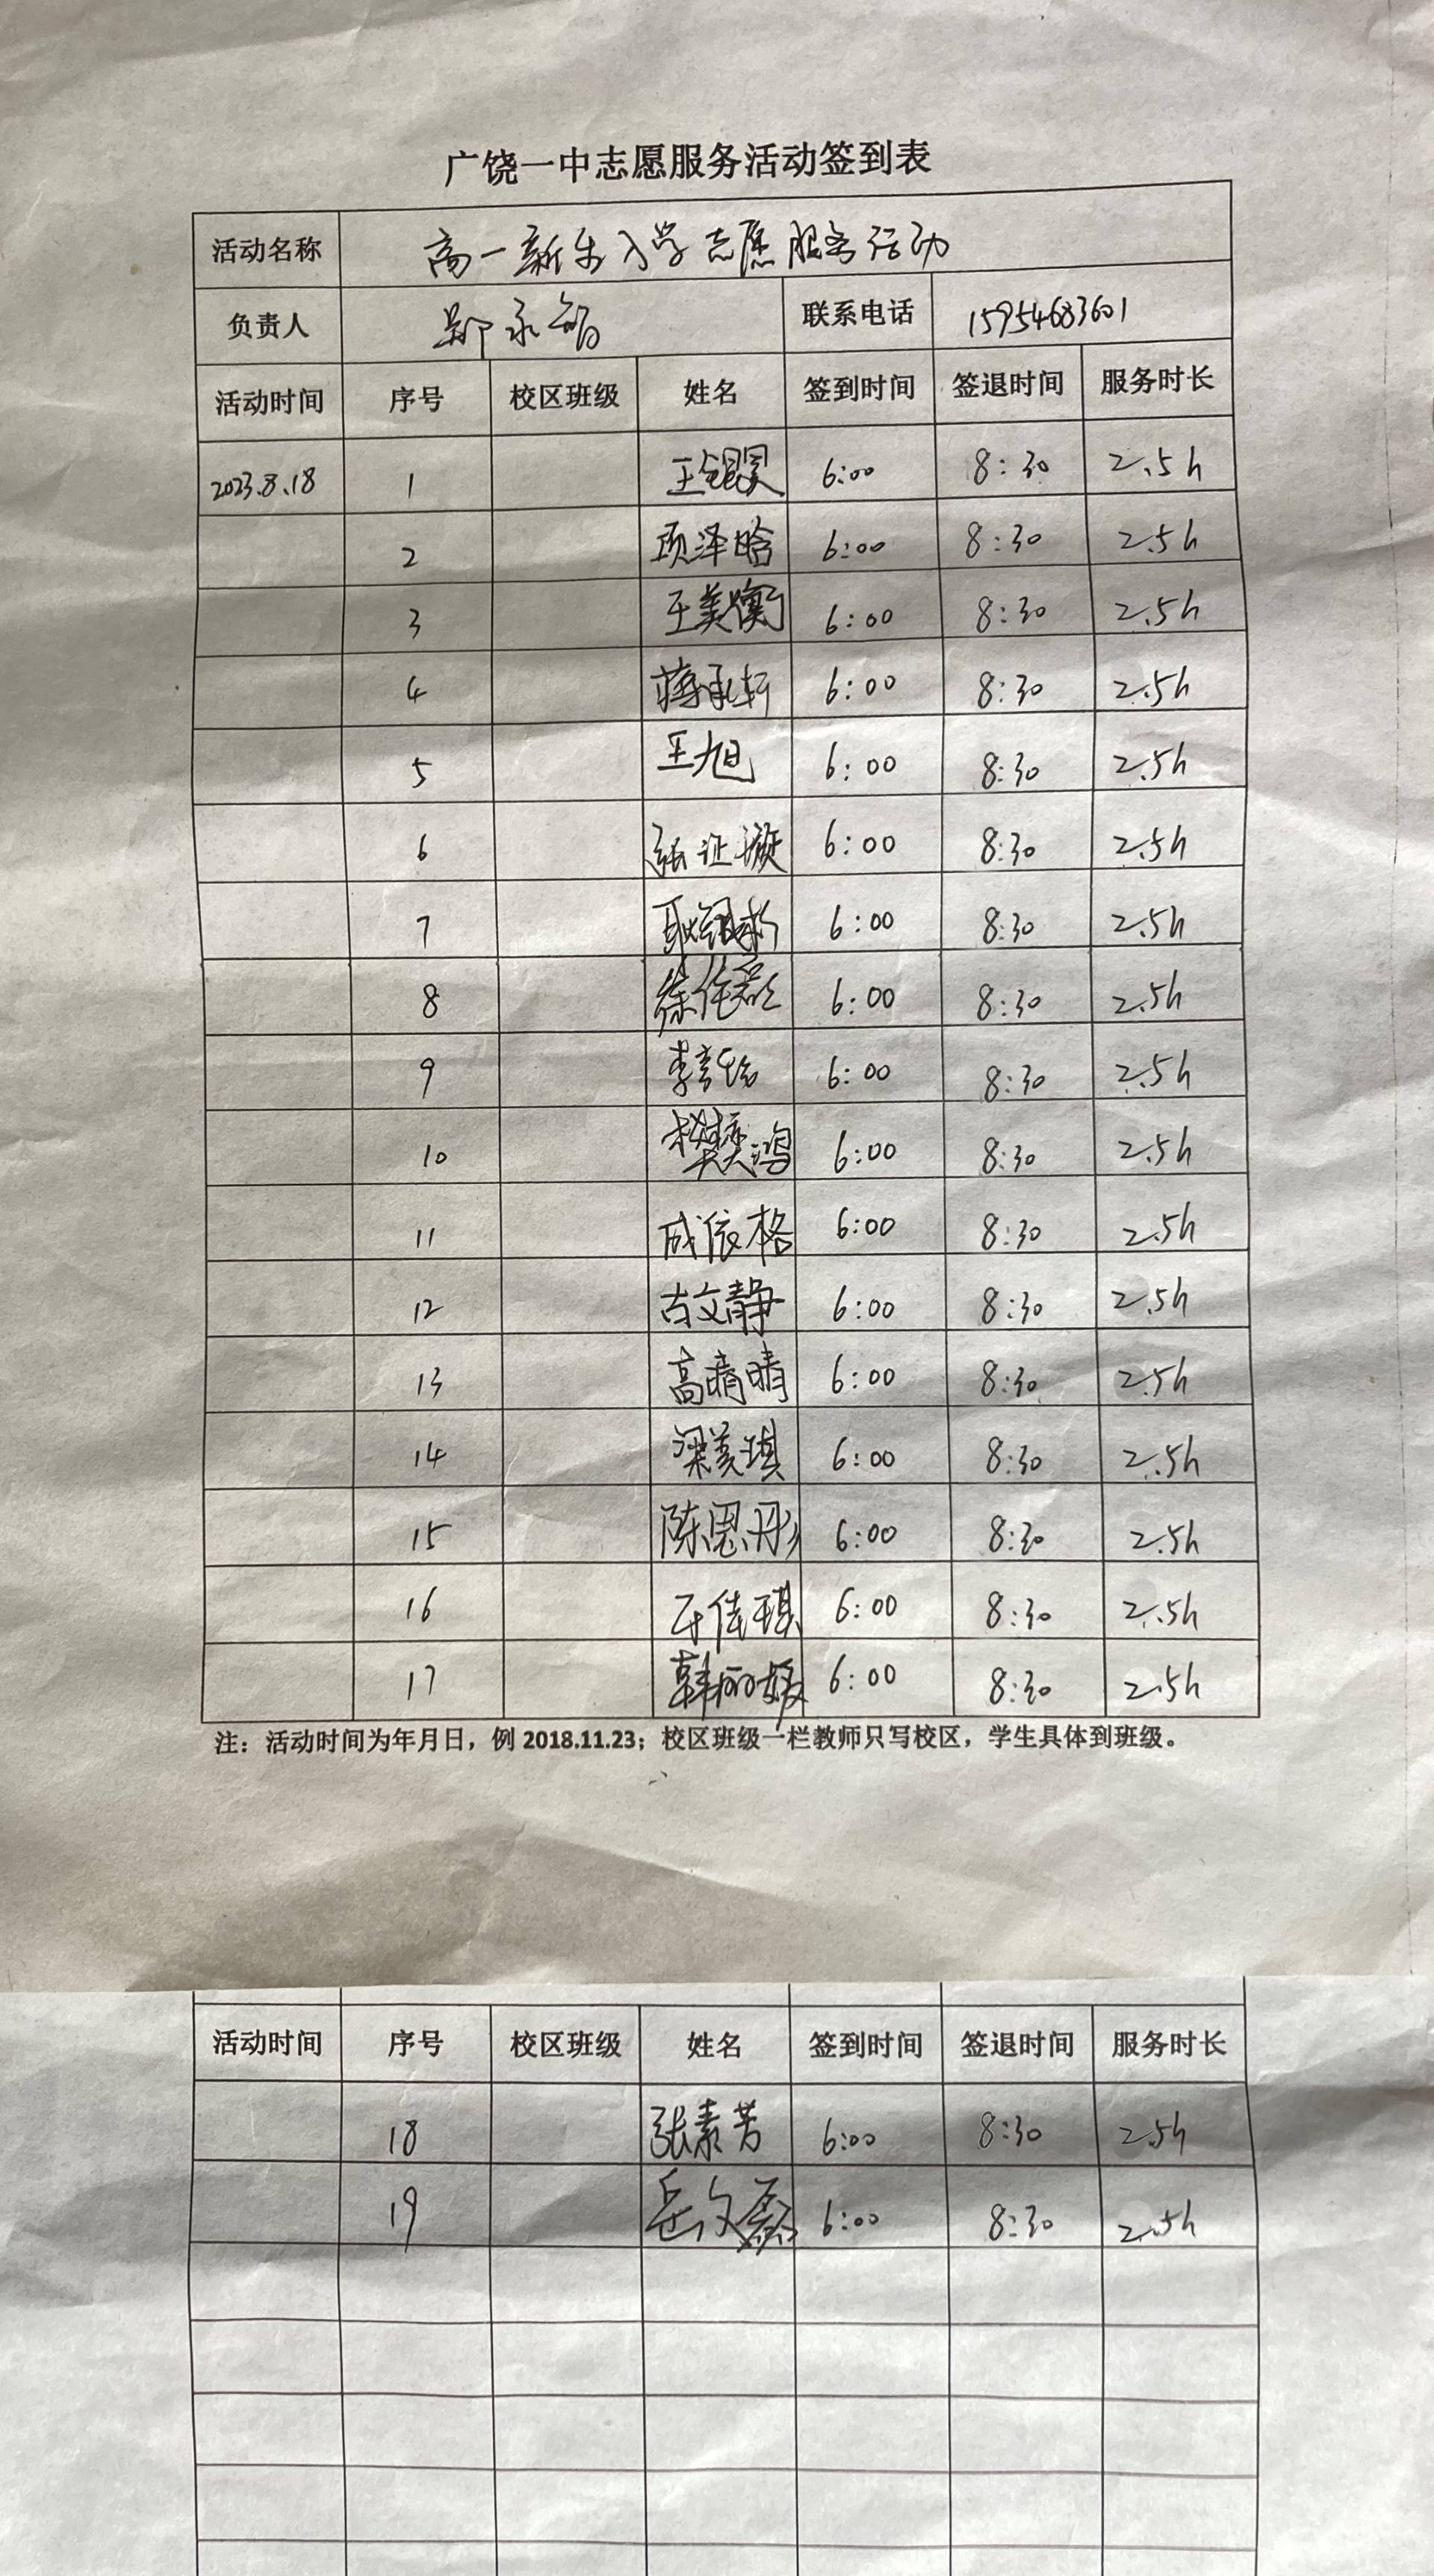 广饶一中志愿服务活动签到表
活动名称 高一新生入学志愿服务活动
负责人 郑永智 联系电话 15954683601
活动时间 序号 校区班级 姓名 签到时间 签退时间 服务时长
2023.8.18 1 王锟昊 6:00 8:30 2.5h
2 项泽晗 6:00 8:30 2.5h
3 王美衡 6:00 8:30 2.5h
4 蒋承轩 6:00 8:30 2.5h
5 王旭 6:00 8:30 2.5h
6 张证璇 6:00 8:30 2.5h
7 6:00 8:30 2.5h
8 6:00 8:30 2.5h
9 6:00 8:30 2.5h
10 6:00 8:30 2.5h
11 成依格 6:00 8:30 2.5h
12 古文静 6:00 8:30 2.5h
13 高晴晴 6:00 8:30 2.5h
14 梁美琪 6:00 8:30 2.5h
15 陈思彤 6:00 8:30 2.5h
16 于佳琪 6:00 8:30 2.5h
17 韩丽媛 6:00 8:30 2.5h
注：活动时间为年月日，例 2018.11.23；校区班级一栏教师只写校区，学生具体到班级。
活动时间 序号 校区班级 姓名 签到时间 签退时间 服务时长
18 张素芳 6:00 8:30 2.5h
19 岳文磊 6:00 8:30 2.5h